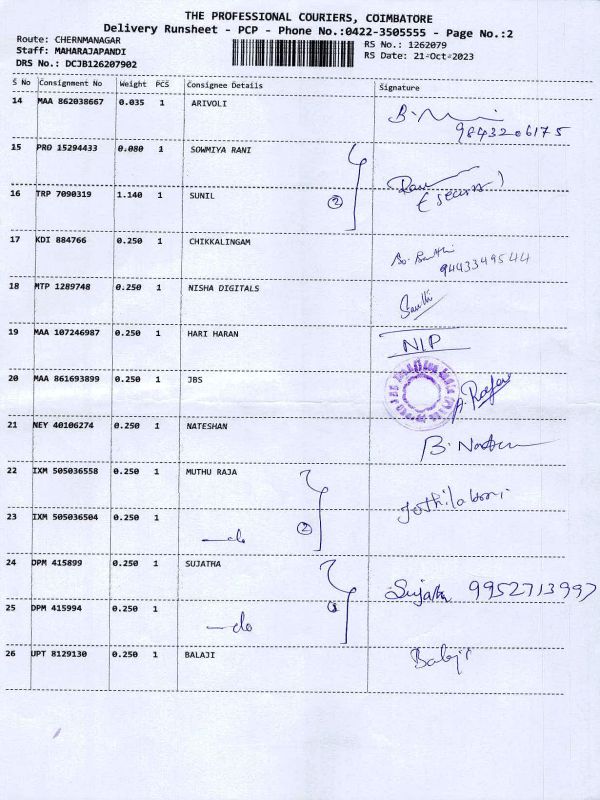 THE PROFESSIONAL COURIERS, COIMBATORE
Delivery Runsheet - PCP - Phone No.:0422-3505555 - Page No.:2
Route: CHERNMANAGAR
Staff: MAHARAJAPANDI
DRS No.: DCJB126207902
RS No.: 1262079
RS Date: 21-Oct-2023
S No Consignment No Weight PCS Consignee Details Signature
14 MAA 862038667 0.035 1 ARIVOLI
9843206175
15 PRO 15294433 0.080 1 SOWMIYA RANI
16 TRP 7090319 1.140 1 SUNIL 2
17 KDI 884766 0.250 1 CHIKKALINGAM
9443349544
18 MTP 1289748 0.250 1 NISHA DIGITALS
19 MAA 107246987 0.250 1 HARI HARAN NIP
20 MAA 861693899 0.250 1 JBS
21 NEY 40106274 0.250 1 NATESHAN
22 IXM 505036558 0.250 1 MUTHU RAJA
23 IXM 505036504 0.250 1 —do 2
24 DPM 415899 0.250 1 SUJATHA Sujatha 9952713997
25 DPM 415994 0.250 1 —do
26 UPT 8129130 0.250 1 BALAJI Balaji